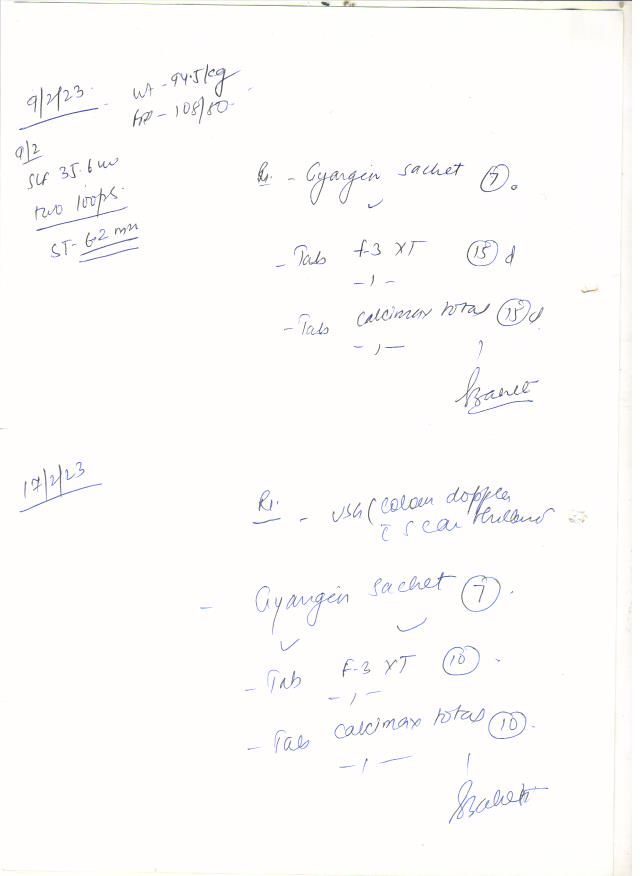 9/2/23. Wt - 94.5 kg
BP - 108/80.
9/2
SLF 35.6 w
two loops.
ST - 6.2 mm
Rx. - Gyargin sachet (7).
- Tab f-3 XT (15) d
- 1 -
- Tab calcimax total (15) d
- 1 -
17/2/23
Rx. - USG (colour doppler
c scar
Gyargin sachet (7).
- Tab F-3 XT (10).
- 1 -
- Tab calcimax total (10).
- 1 -